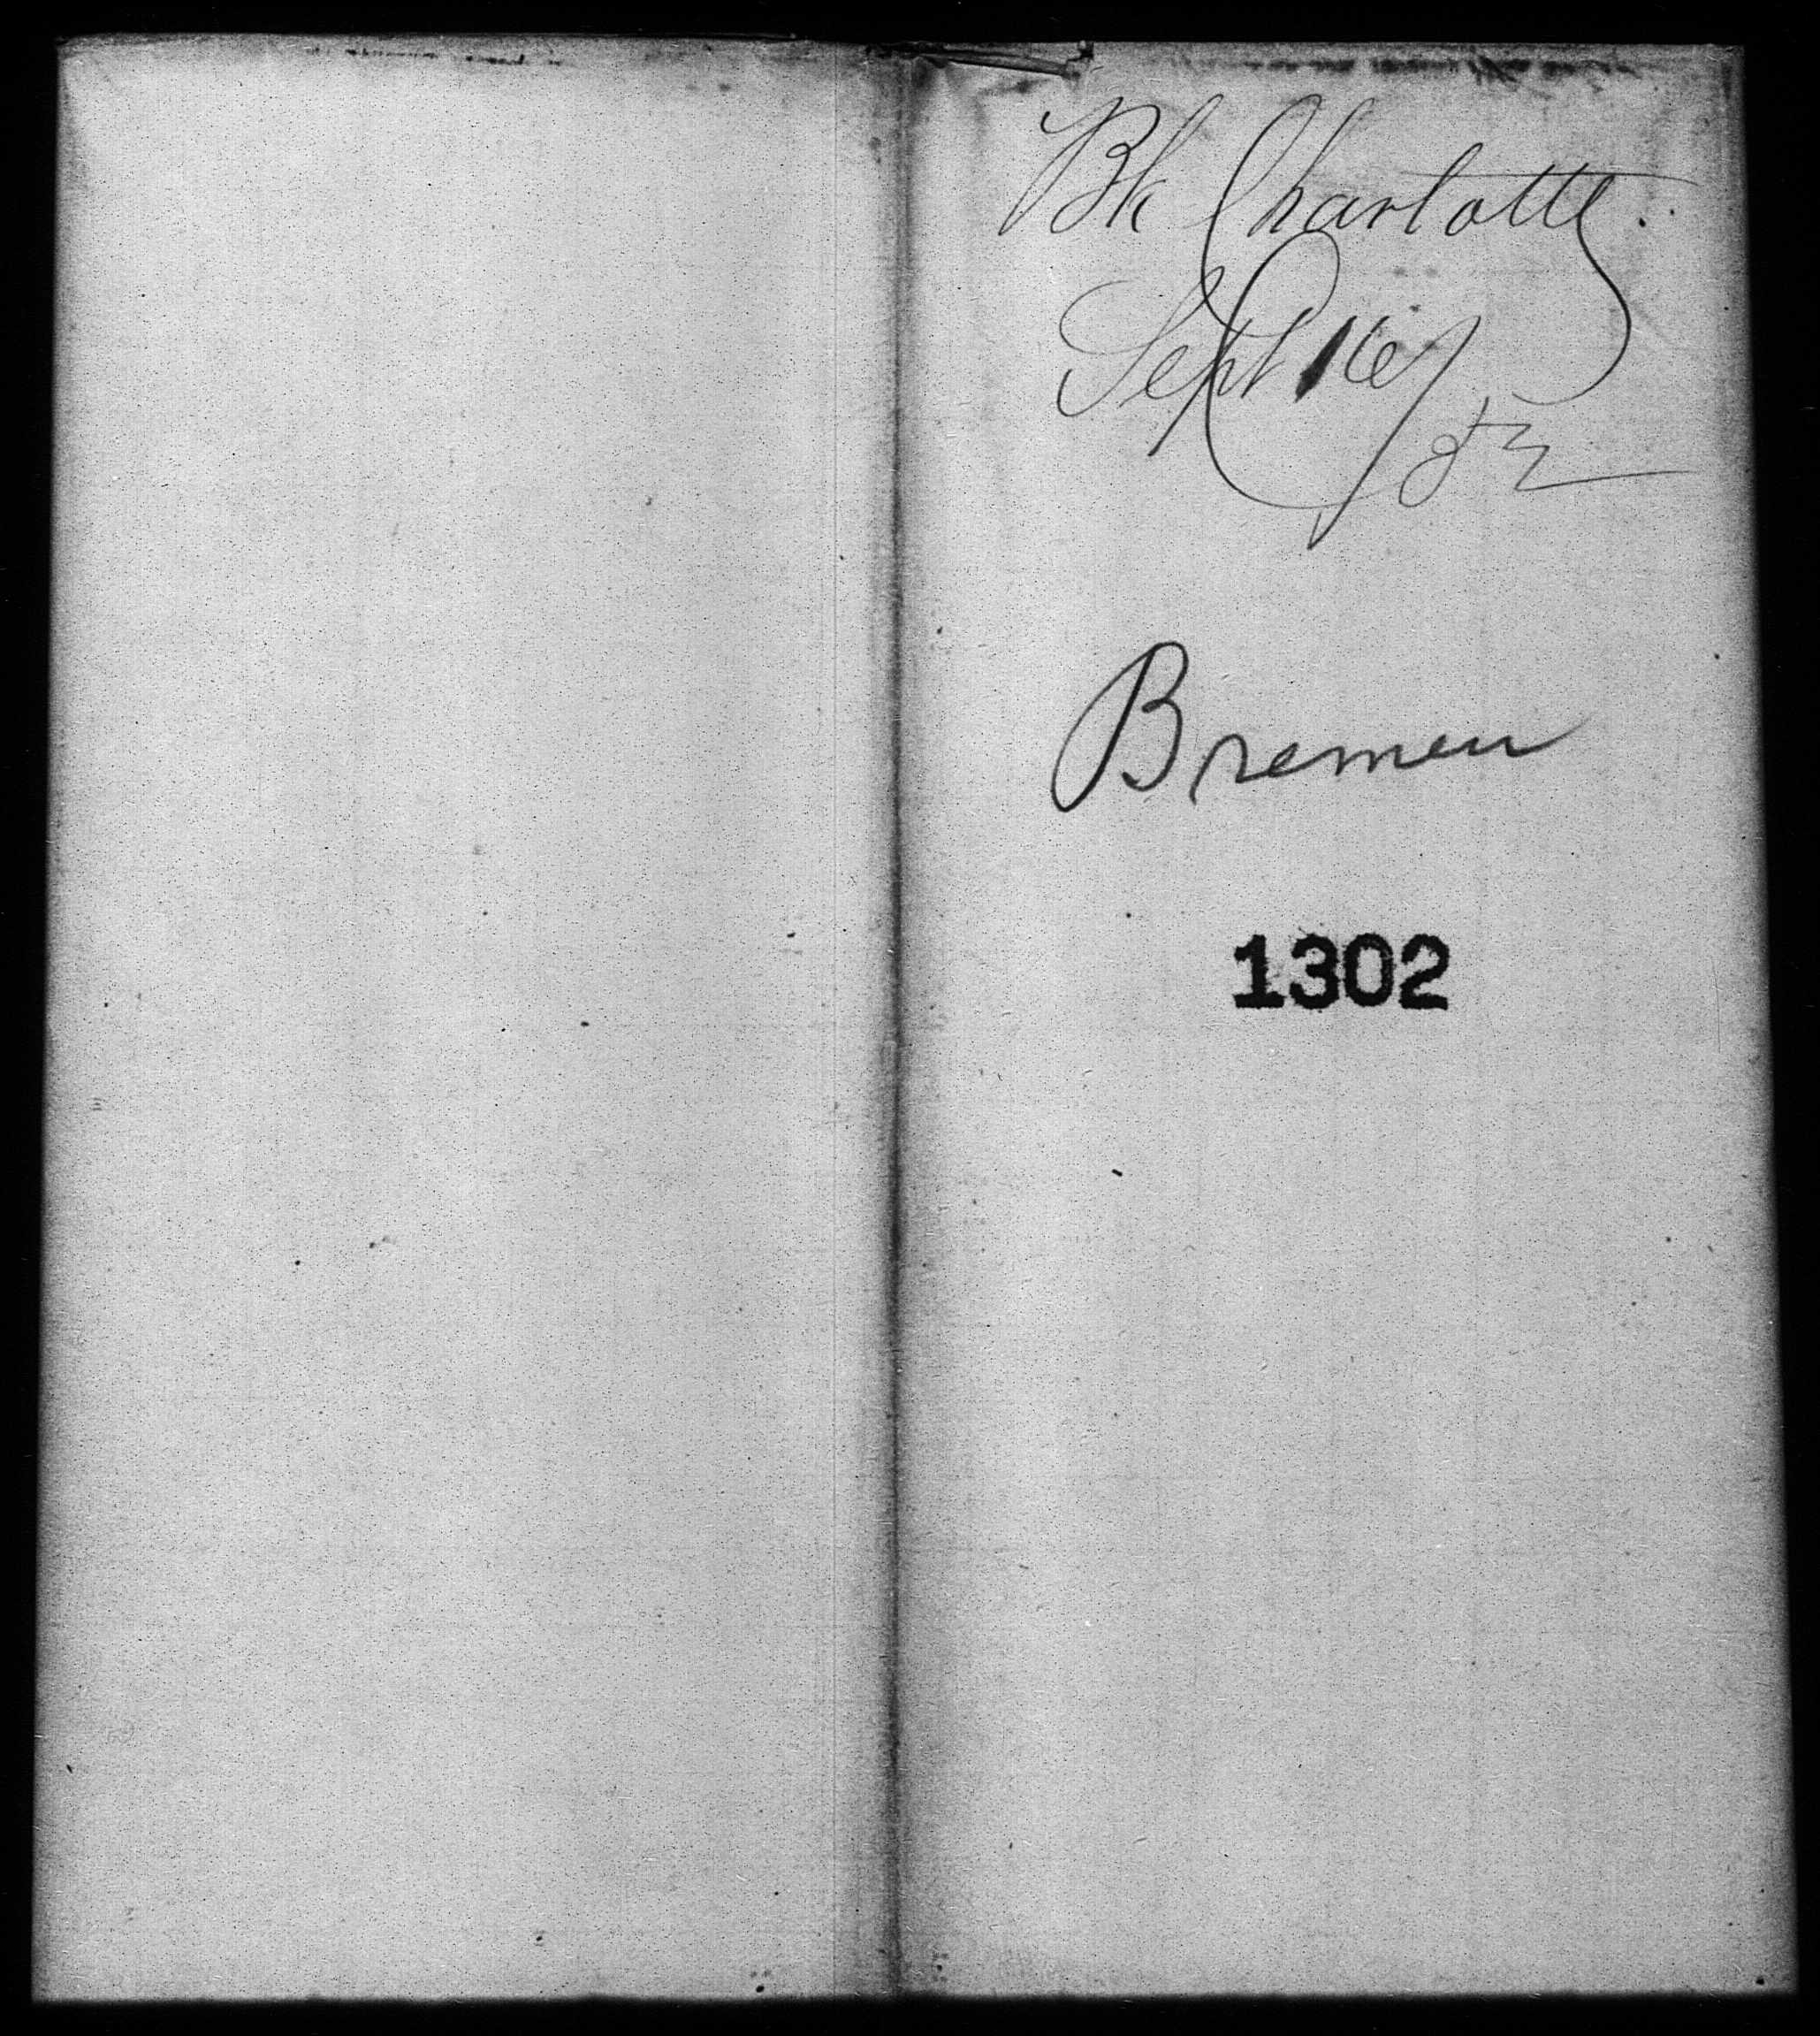 Bk Charlotte.
Sept 16/
52
Bremen
1302